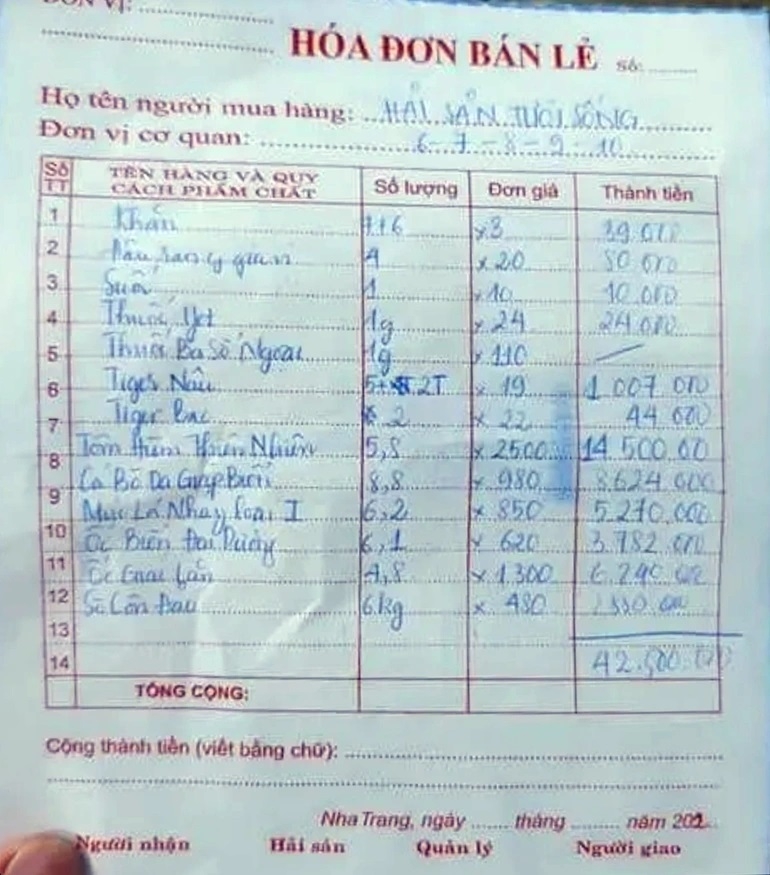 ĐƠN VỊ:
HÓA ĐƠN BÁN LẺ Số:
Họ tên người mua hàng: HẢI SẢN TƯƠI SỐNG
Đơn vị cơ quan: 6-7-8-9-10
Số TT TÊN HÀNG VÀ QUY CÁCH PHẨM CHẤT Số lượng Đơn giá Thành tiền
1 Khăn x3 39.000
2 4 x 20 80.000
3 Suối 1 x 10 10.000
4 Thuốc Jet 1g x 24 24.000
5 Thuốc Ba Số Ngoại 1g x 110
6 Tiger Nâu 2T x 19 1.007.000
7 Tiger Bạc 2 x 22 44.000
Tôm Hùm Thiên Nhiên 5,8 x 2500 14.500.00
8 Cá Bò Da 8,8 x 980 8.624.000
9 Mực Lá Nháy loại I 6,2 x 850 5.270.000
10 Ốc Biển Đại Dương 6,1 x 620 3.782.000
11 Ốc 4,8 x 1.300
12 Sò 6kg x 480
13
14 42.500.000
TỔNG CỘNG:
Cộng thành tiền (viết bằng chữ):
Nha Trang, ngày tháng năm 202
Người nhận Hải sản Quản lý Người giao